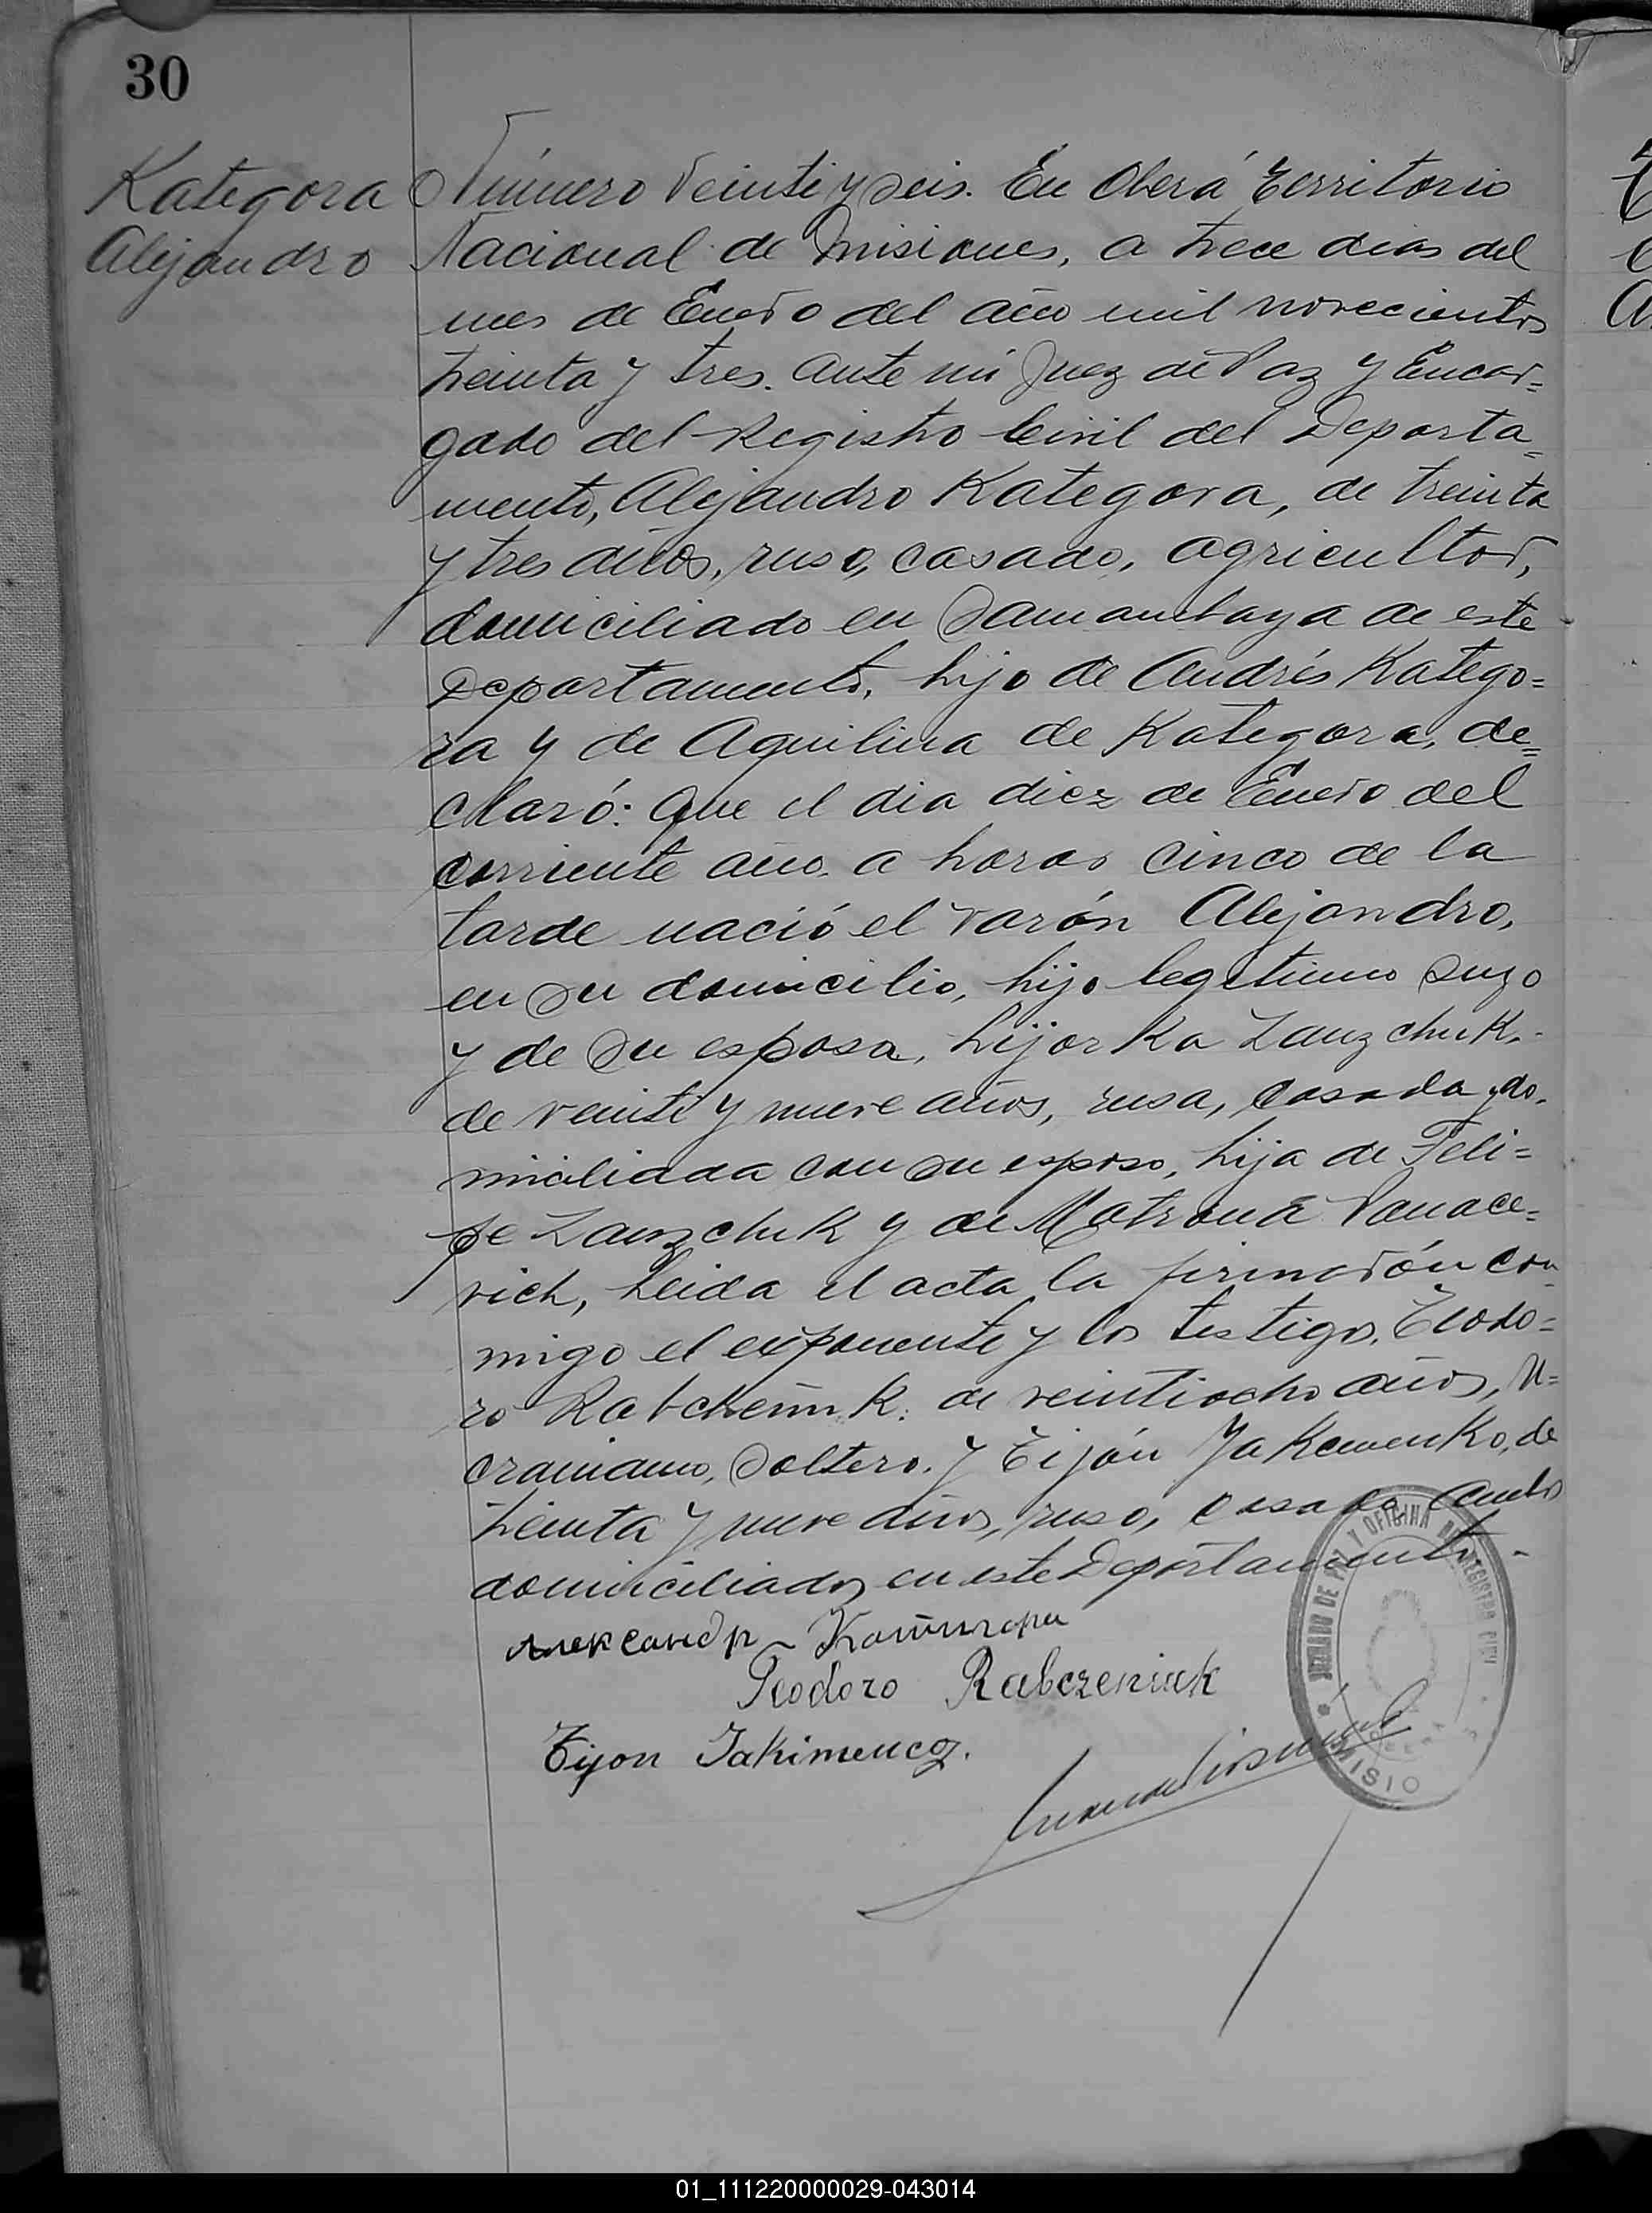 30
Kategora
Alejandro
Número Veinti y seis. En Oberá Territorio
Nacional de Misiones, a trece dias del
mes de Enero del año mil novecientos
treinta y tres. Ante mi Juez de Paz y Encar=
gado del Registro Civil del Departa=
mento, Alejandro Kategora, de treinta
y tres años, ruso, casado, agricultor,
domiciliado en Samambaya de este
Departamento, hijo de Andrés Katego=
ra y de Aquilina de Kategora, de=
claró: Que el dia diez de Enero del
corriente año a horas cinco de la
tarde nació el varón Alejandro,
en su domicilio, hijo legitimo suyo
y de su esposa, Lijorka Zanzchuk,
de veinti y nueve años, rusa, casada, do.
miciliada con su esposo, hija de Feli=
pe Zanzchuk y de Matrona Panace=
vich, Leida el acta la firmarón con
migo el exponente y los testigo, Teodo=
ro Rabcheniuk. de veintiocho años, U=
craniano, Soltero. Y Tijón Jakemenko, de
treinta y nueve años, ruso, casado Ambos
domiciliados en este Departamento -
Александр Катигора
Teodoro Rabczeniuk
Tijon Jakimenco.
JUZGADO DE PAZ Y OFICINA DEL REGISTRO CIVIL
MISIO
01_111220000029-043014